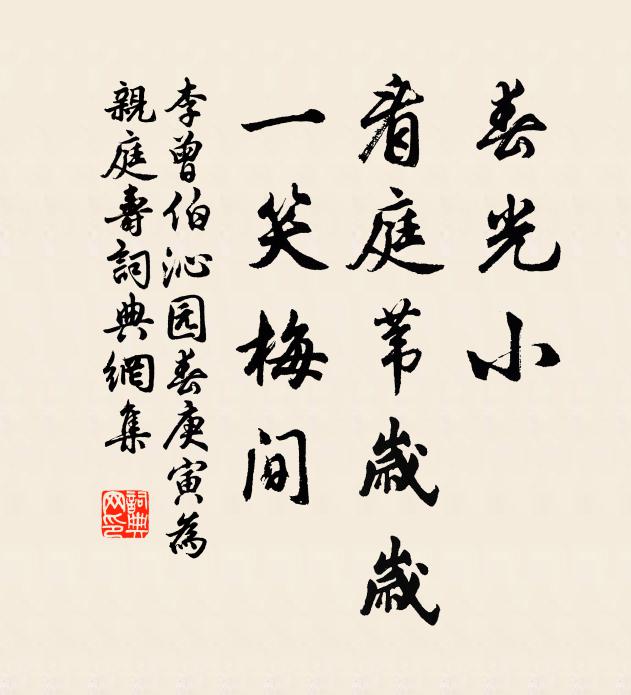 春光小
看庭苇岁岁
一笑梅间
李曾伯沁园春庚寅為
親庭壽詞典網集
詞典网印